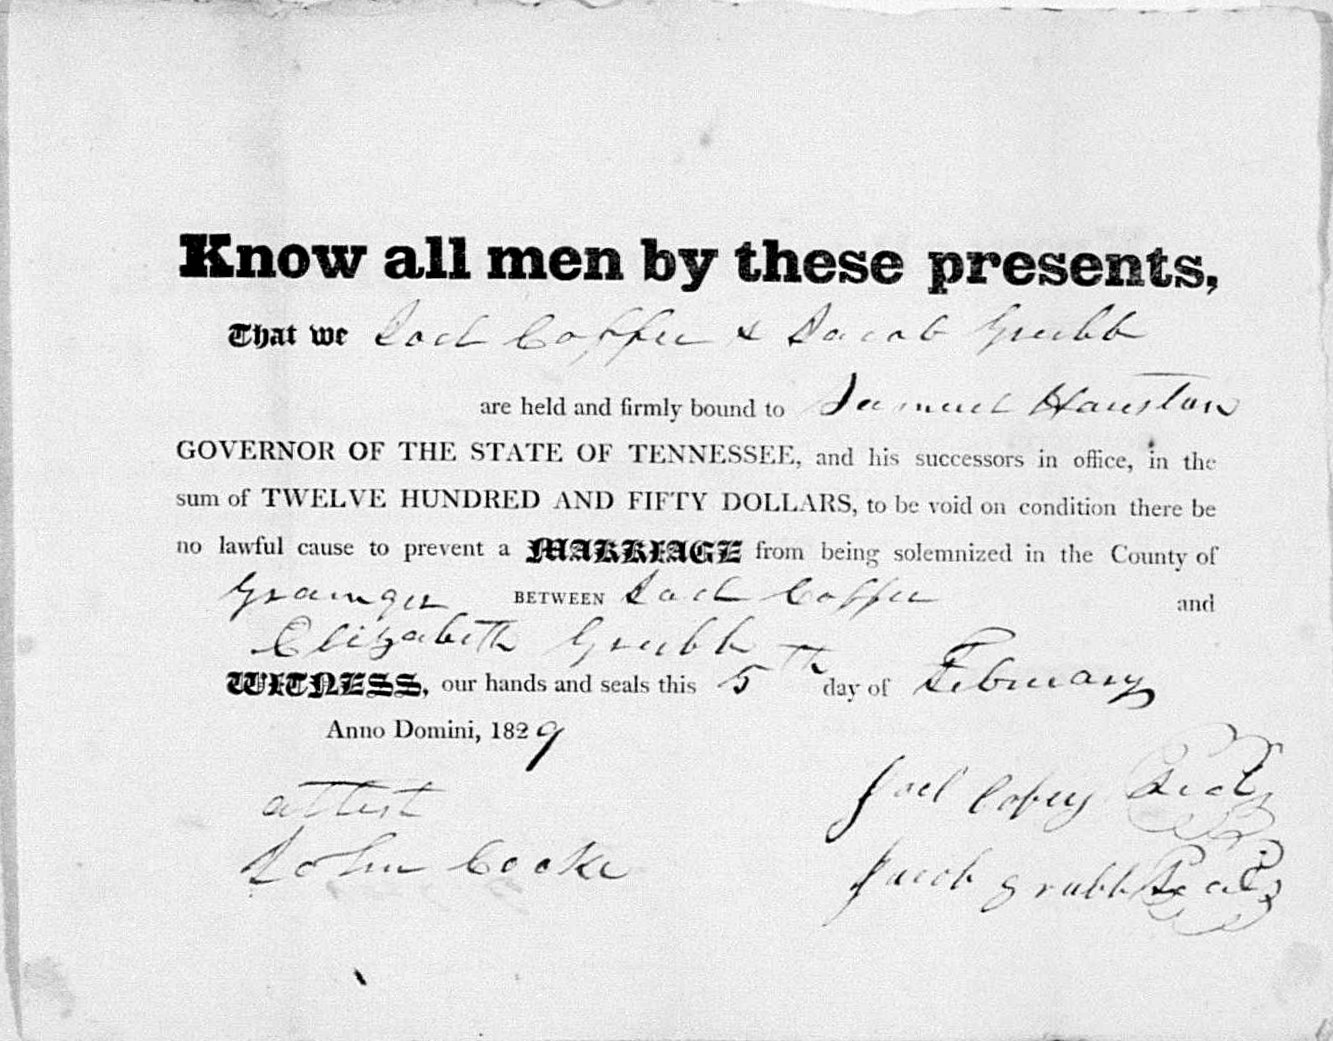 Know all men by these presents,
That we Joel Coffee & Jacob Grubb
are held and firmly bound to Samuel Houston
GOVERNOR OF THE STATE OF TENNESSEE, and his successors in office, in the
sum of TWELVE HUNDRED AND FIFTY DOLLARS, to be void on condition there be
no lawful cause to prevent a MARRIAGE from being solemnized in the County of
Grainger BETWEEN Joel Coffee and
Elizabeth Grubb
WITNESS, our hands and seals this 5th day of February
Anno Domini, 1829
attest Joel Cofey Seal
John Cocke Jacob Grubb Seal